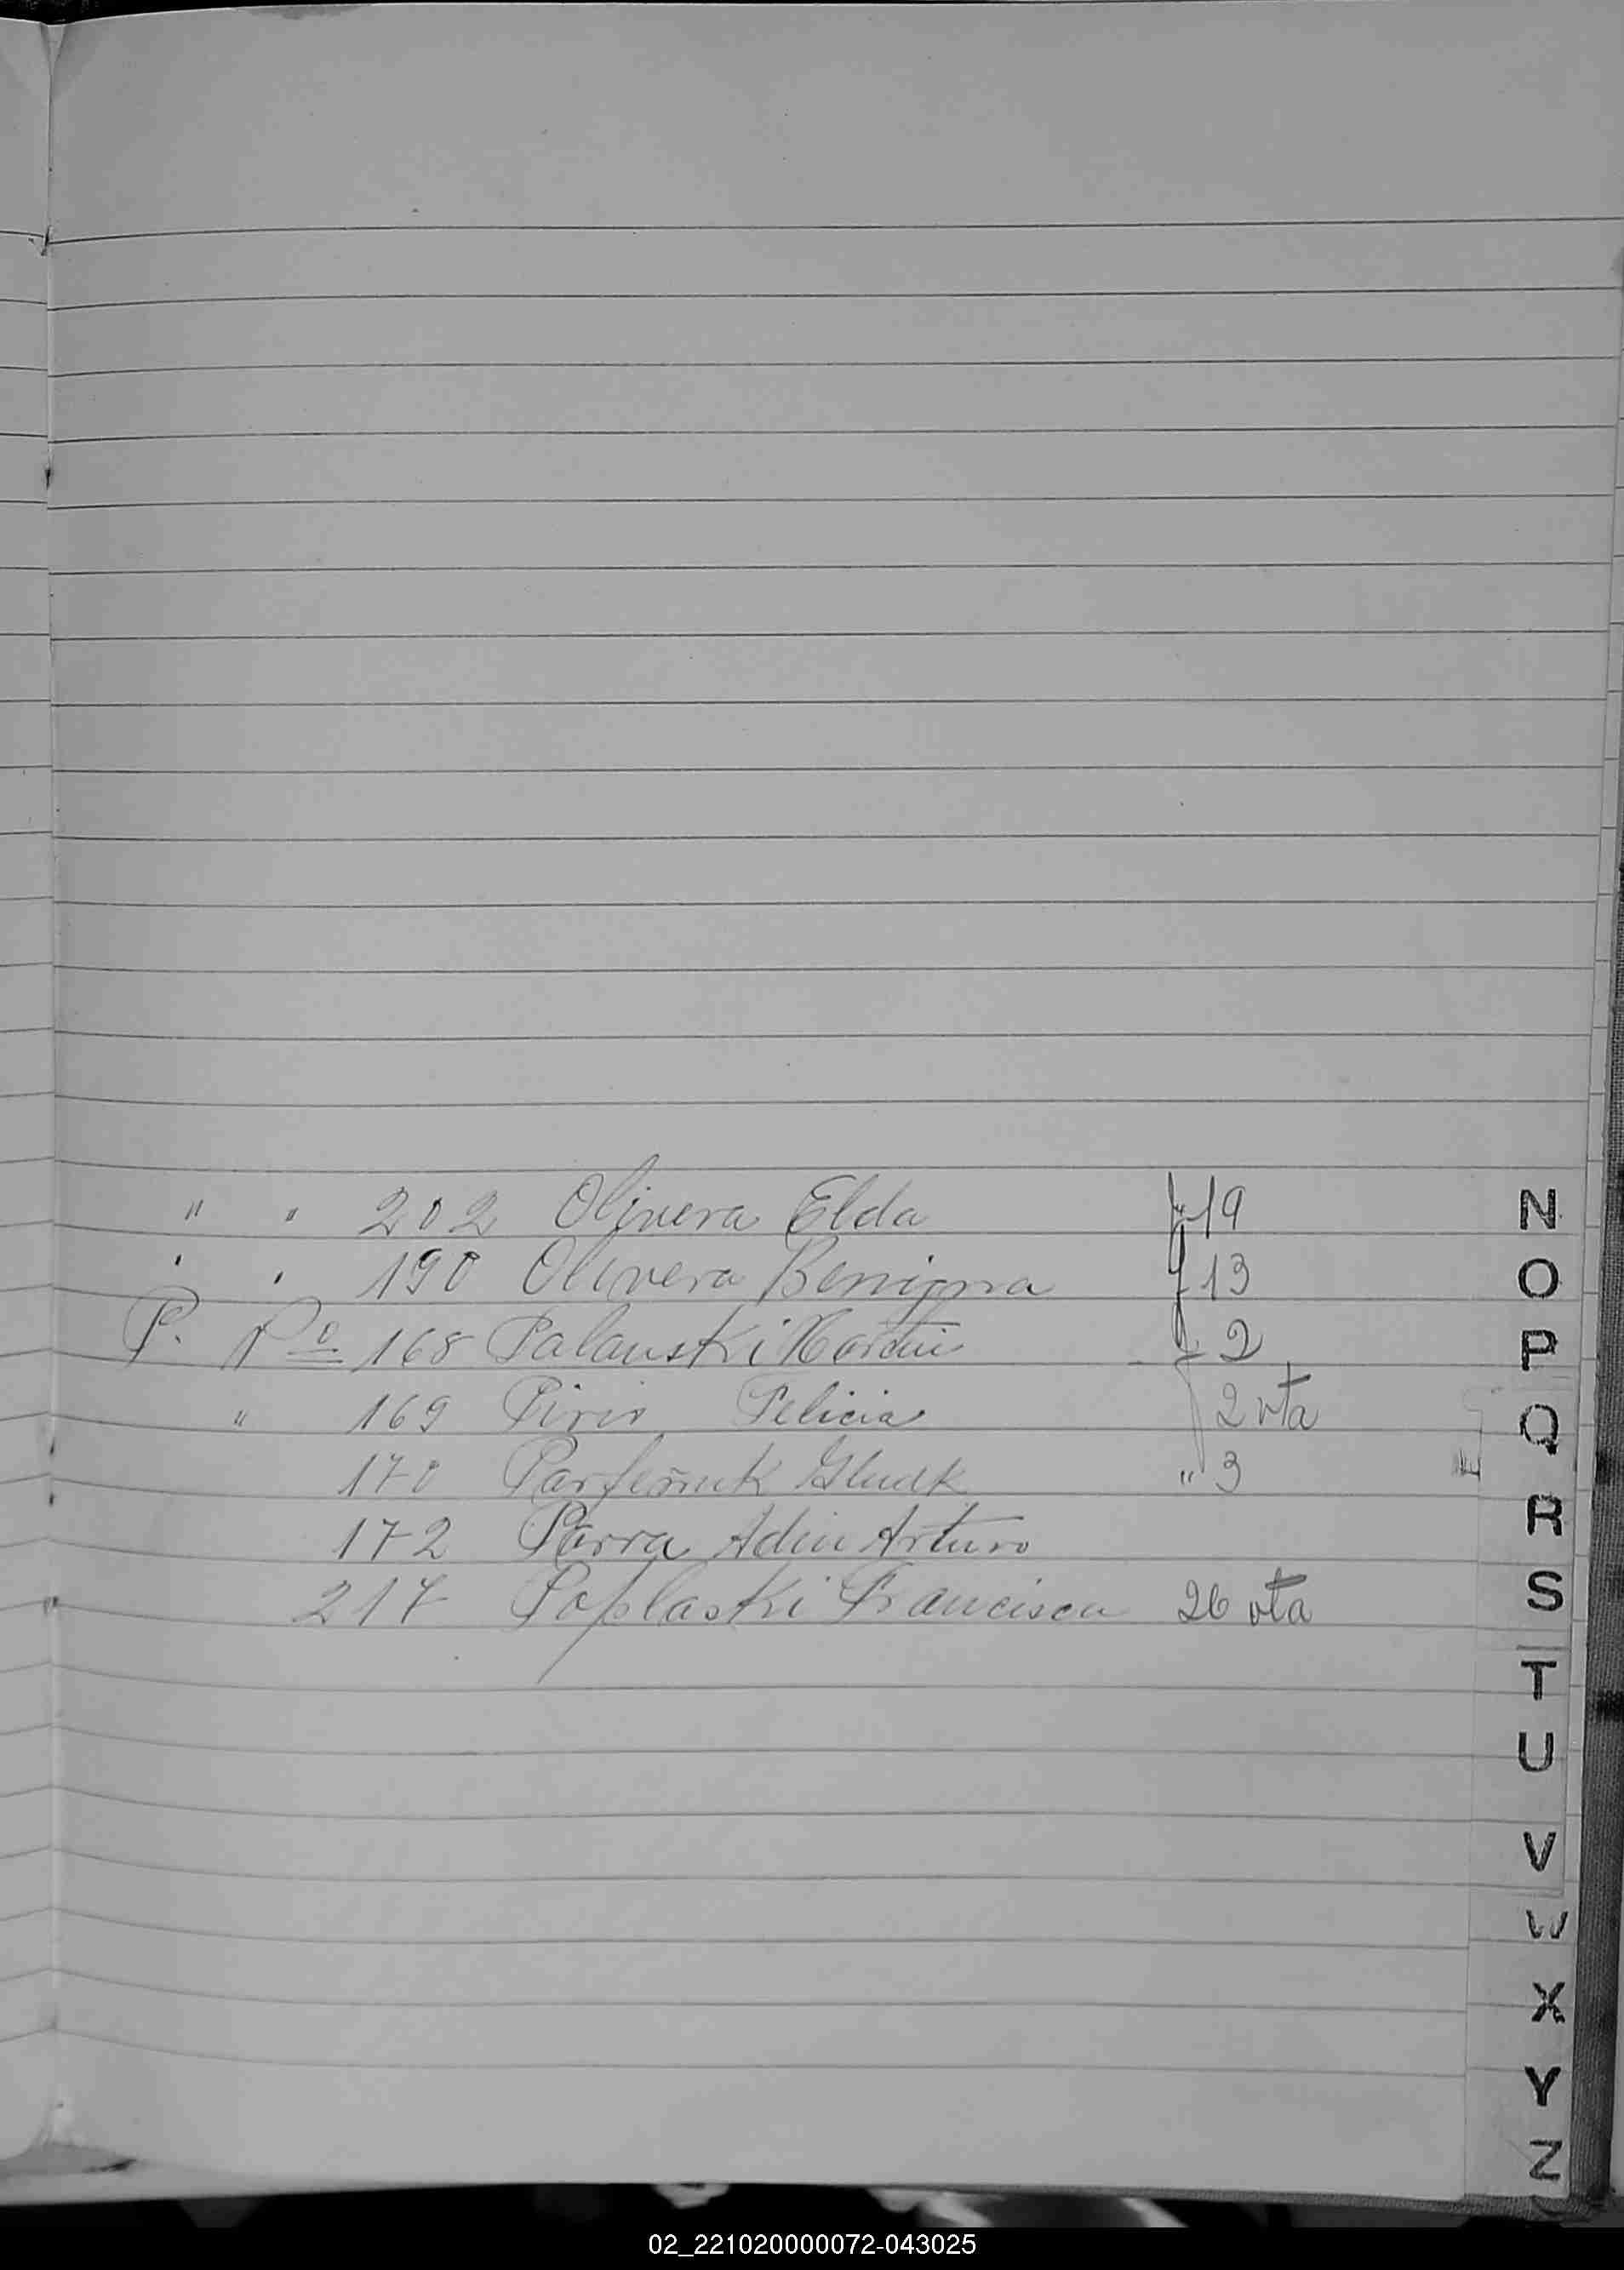 " " 202 Olivera Elda f 19
" " 190 Olivera Benigna f 13
P. No 168 Palauski f 2
" 169 Piris Felicia 2 vta
170 " 3
172 Parra Adin Arturo
217 Poplaski Francisca 26 vta
N
O
P
Q
R
S
T
U
V
W
X
Y
Z
02_221020000072-043025